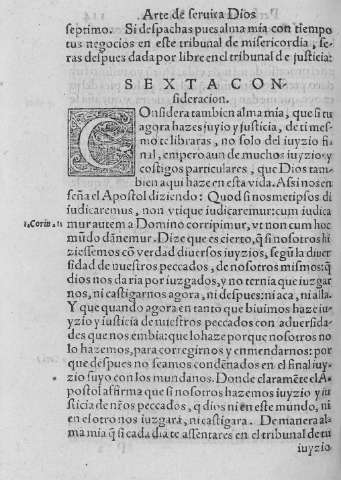 Arte de seruira Dios
septimo. Si despachas pues alma mia con tiempo
tus negocios en este tribunal de misericordia, se-
ras despues dada por libre en el tribunal de justicia.
SEXTA CON-
sideracion.
COnsidera tambien alma mia, que si tu
agora hazes juyio y justicia, de ti mes-
mo te libraras, no solo del iuyzio fi-
nal, empero aun de muchos iuyzios y
costigos particulares, que Dios tam-
bien aqui haze en esta vida. Assi nos en
seña el Apostol diziendo: Quod si nosmetipsos di
iudicaremus, non vtique iudicaremur: cum iudica
1. Corin. 11 mur autem a Domino corripimur, vt non cum hoc
mũdo dãnemur. Dize que es cierto, q̃ si nosotros hi
ziessemos cõ verdad diuersos iuyzios, segũ la diuer
sidad de nuestros peccados, de nosotros mismos: q̃
dios nos daria por iuzgados, y no ternia que iuzgar
nos, ni castigarnos agora, ni despues: ni aca, ni alla.
Y que quando agora en tanto que biuimos haze iu-
yzio y iusticia de nuestros peccados con aduersida-
des que nos embia: que lo haze porque nosotros no
lo hazemos, para corregirnos y enmendarnos: por
que despues no seamos condenados en el final iuy-
zio suyo con los mundanos. Donde claramẽte el A-
postol affirma que si nosotros hazemos iuyzio y iu-
sticia de nr̃os peccados, q̃ dios ni en este mundo, ni
en el otro nos iuzgara, ni castigara. De manera al-
ma mia q̃ si cada dia te assentares en el tribunal de tu
iuyzio